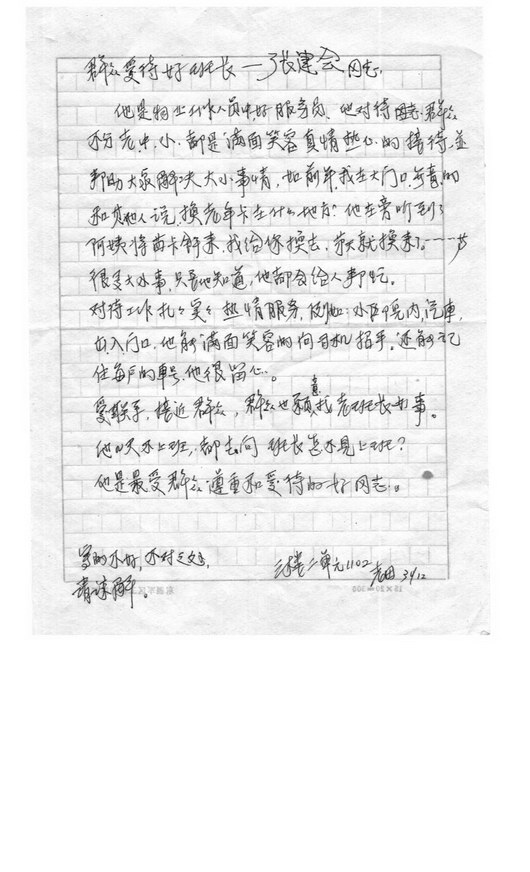 群众爱待好班长—张建会同志.
他是物业工作人员中好服务员、他对待同志.群众
不分老.中.小.都是满面笑容真情热心的接待.并
帮助大家解决大小事情，如前年.我在大门口.无意的
和其他人说.换老年卡在什么地方？他在旁听到了
阿姨将旧卡拿来.我给你换去，就换来了……
很多大小事，只要他知道，他都会给人帮忙。
对待工作扎々实々热情服务，例如：小区院内，汽車，
出入门口，他能满面笑容的向司机招手.还能记
住每户的車号.他很留心。
爱联系，接近群众，群众也愿意找老班长办事。
他几天不上班，都去问班长怎不見上班？
他是最受群众遵重和爱待的好同志。
写的不好，不对之处，
请谅解。
三楼二单元1102 老田 3/12
15×20=300